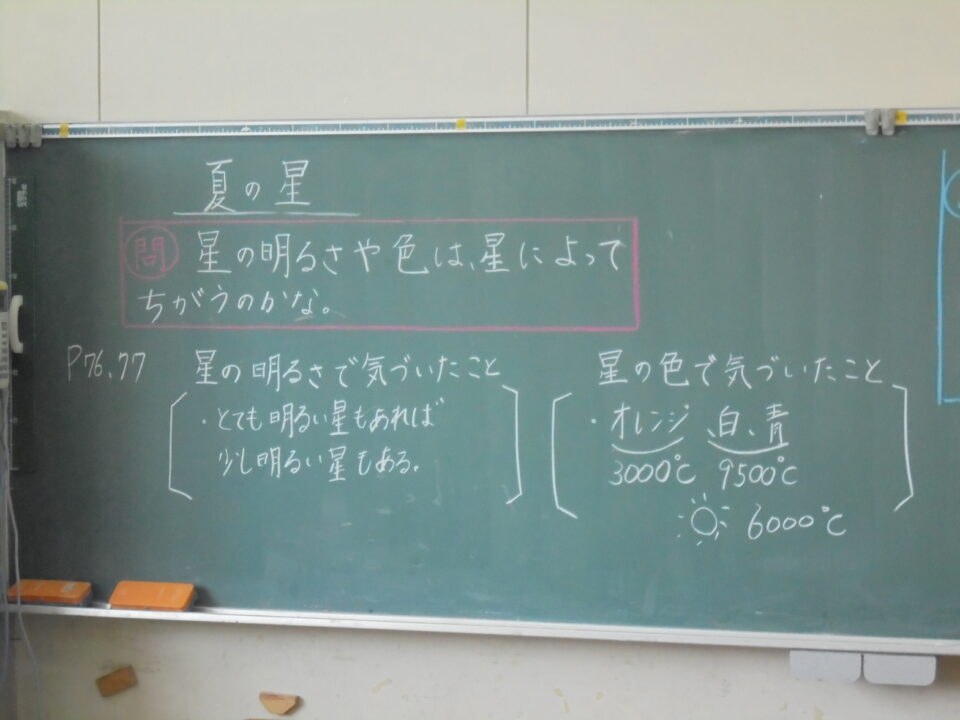 夏の星
問 星の明るさや色は、星によって
ちがうのかな。
P76、77
星の明るさで気づいたこと
・とても明るい星もあれば
少し明るい星もある。
星の色で気づいたこと
・オレンジ、白、青
3000℃ 9500℃
6000℃